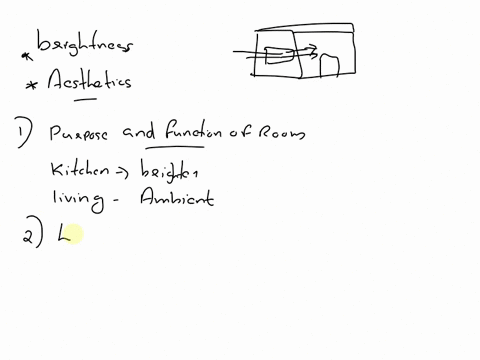 * brightness
* Aesthetics
1) Purpose and function of Room
Kitchen → brighter
living - Ambient
2) L